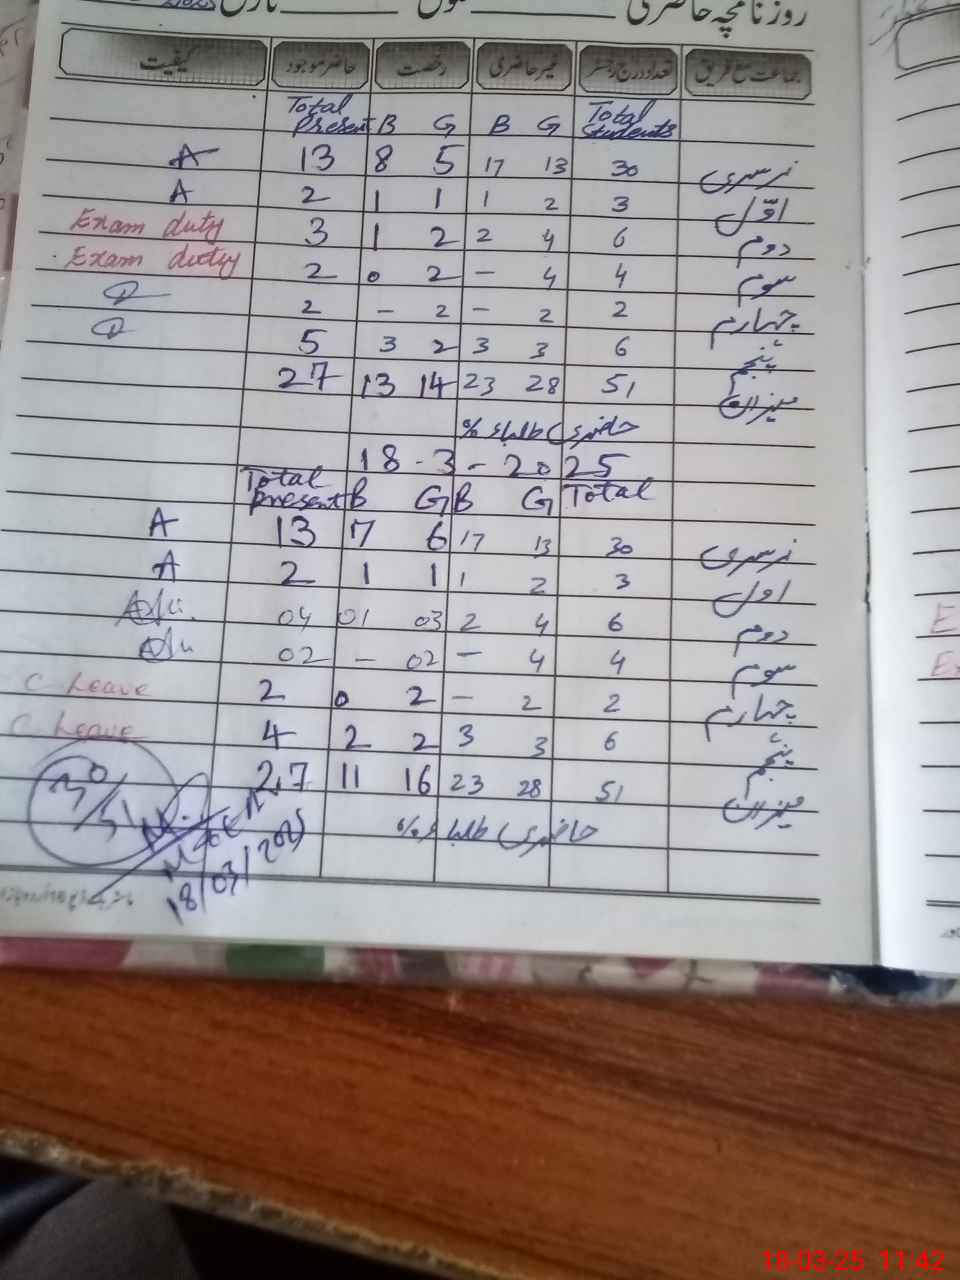 روزنامچہ حاضری
جماعت مع فریق تعداد درج رجسٹر غیر حاضری رخصت حاضر موجود کیفیت
Total Present B G B G Total Students
A 13 8 5 17 13 30 نرسری
A 2 1 1 1 2 3 اوّل
Exam duty 3 1 2 2 4 6 دوم
Exam duty 2 0 2 – 4 4 سوم
2 – 2 – 2 2 چہارم
5 3 2 3 3 6 پنجم
27 13 14 23 28 51 میزان
حاضری طلباء %
18-3-2025
Total Present B G B G Total
A 13 7 6 17 13 30 نرسری
A 2 1 1 1 2 3 اول
04 01 03 2 4 6 دوم
02 – 02 – 4 4 سوم
C Leave 2 0 2 – 2 2 چہارم
C Leave 4 2 2 3 3 6 پنجم
27 11 16 23 28 51 میزان
حاضری طلباء %
30/51
18/03/2025
18-03-25 11:42